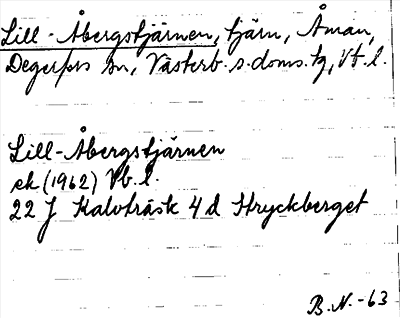 Lill-Åbergstjärnen, tjärn, Åman,
Degerfors sn, Västerb. s. doms. tg, Vb. l.
Lill-Åbergstjärnen
ek (1962) Vb. l.
22 J Kalvträsk 4 d Stryckberget
B. N. -63